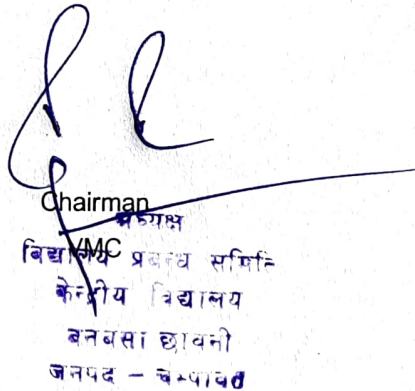 Chairman
अध्यक्ष
VMC
विद्यालय प्रबन्ध समिति
केन्द्रीय विद्यालय
बनबसा छावनी
जनपद - चम्पावत